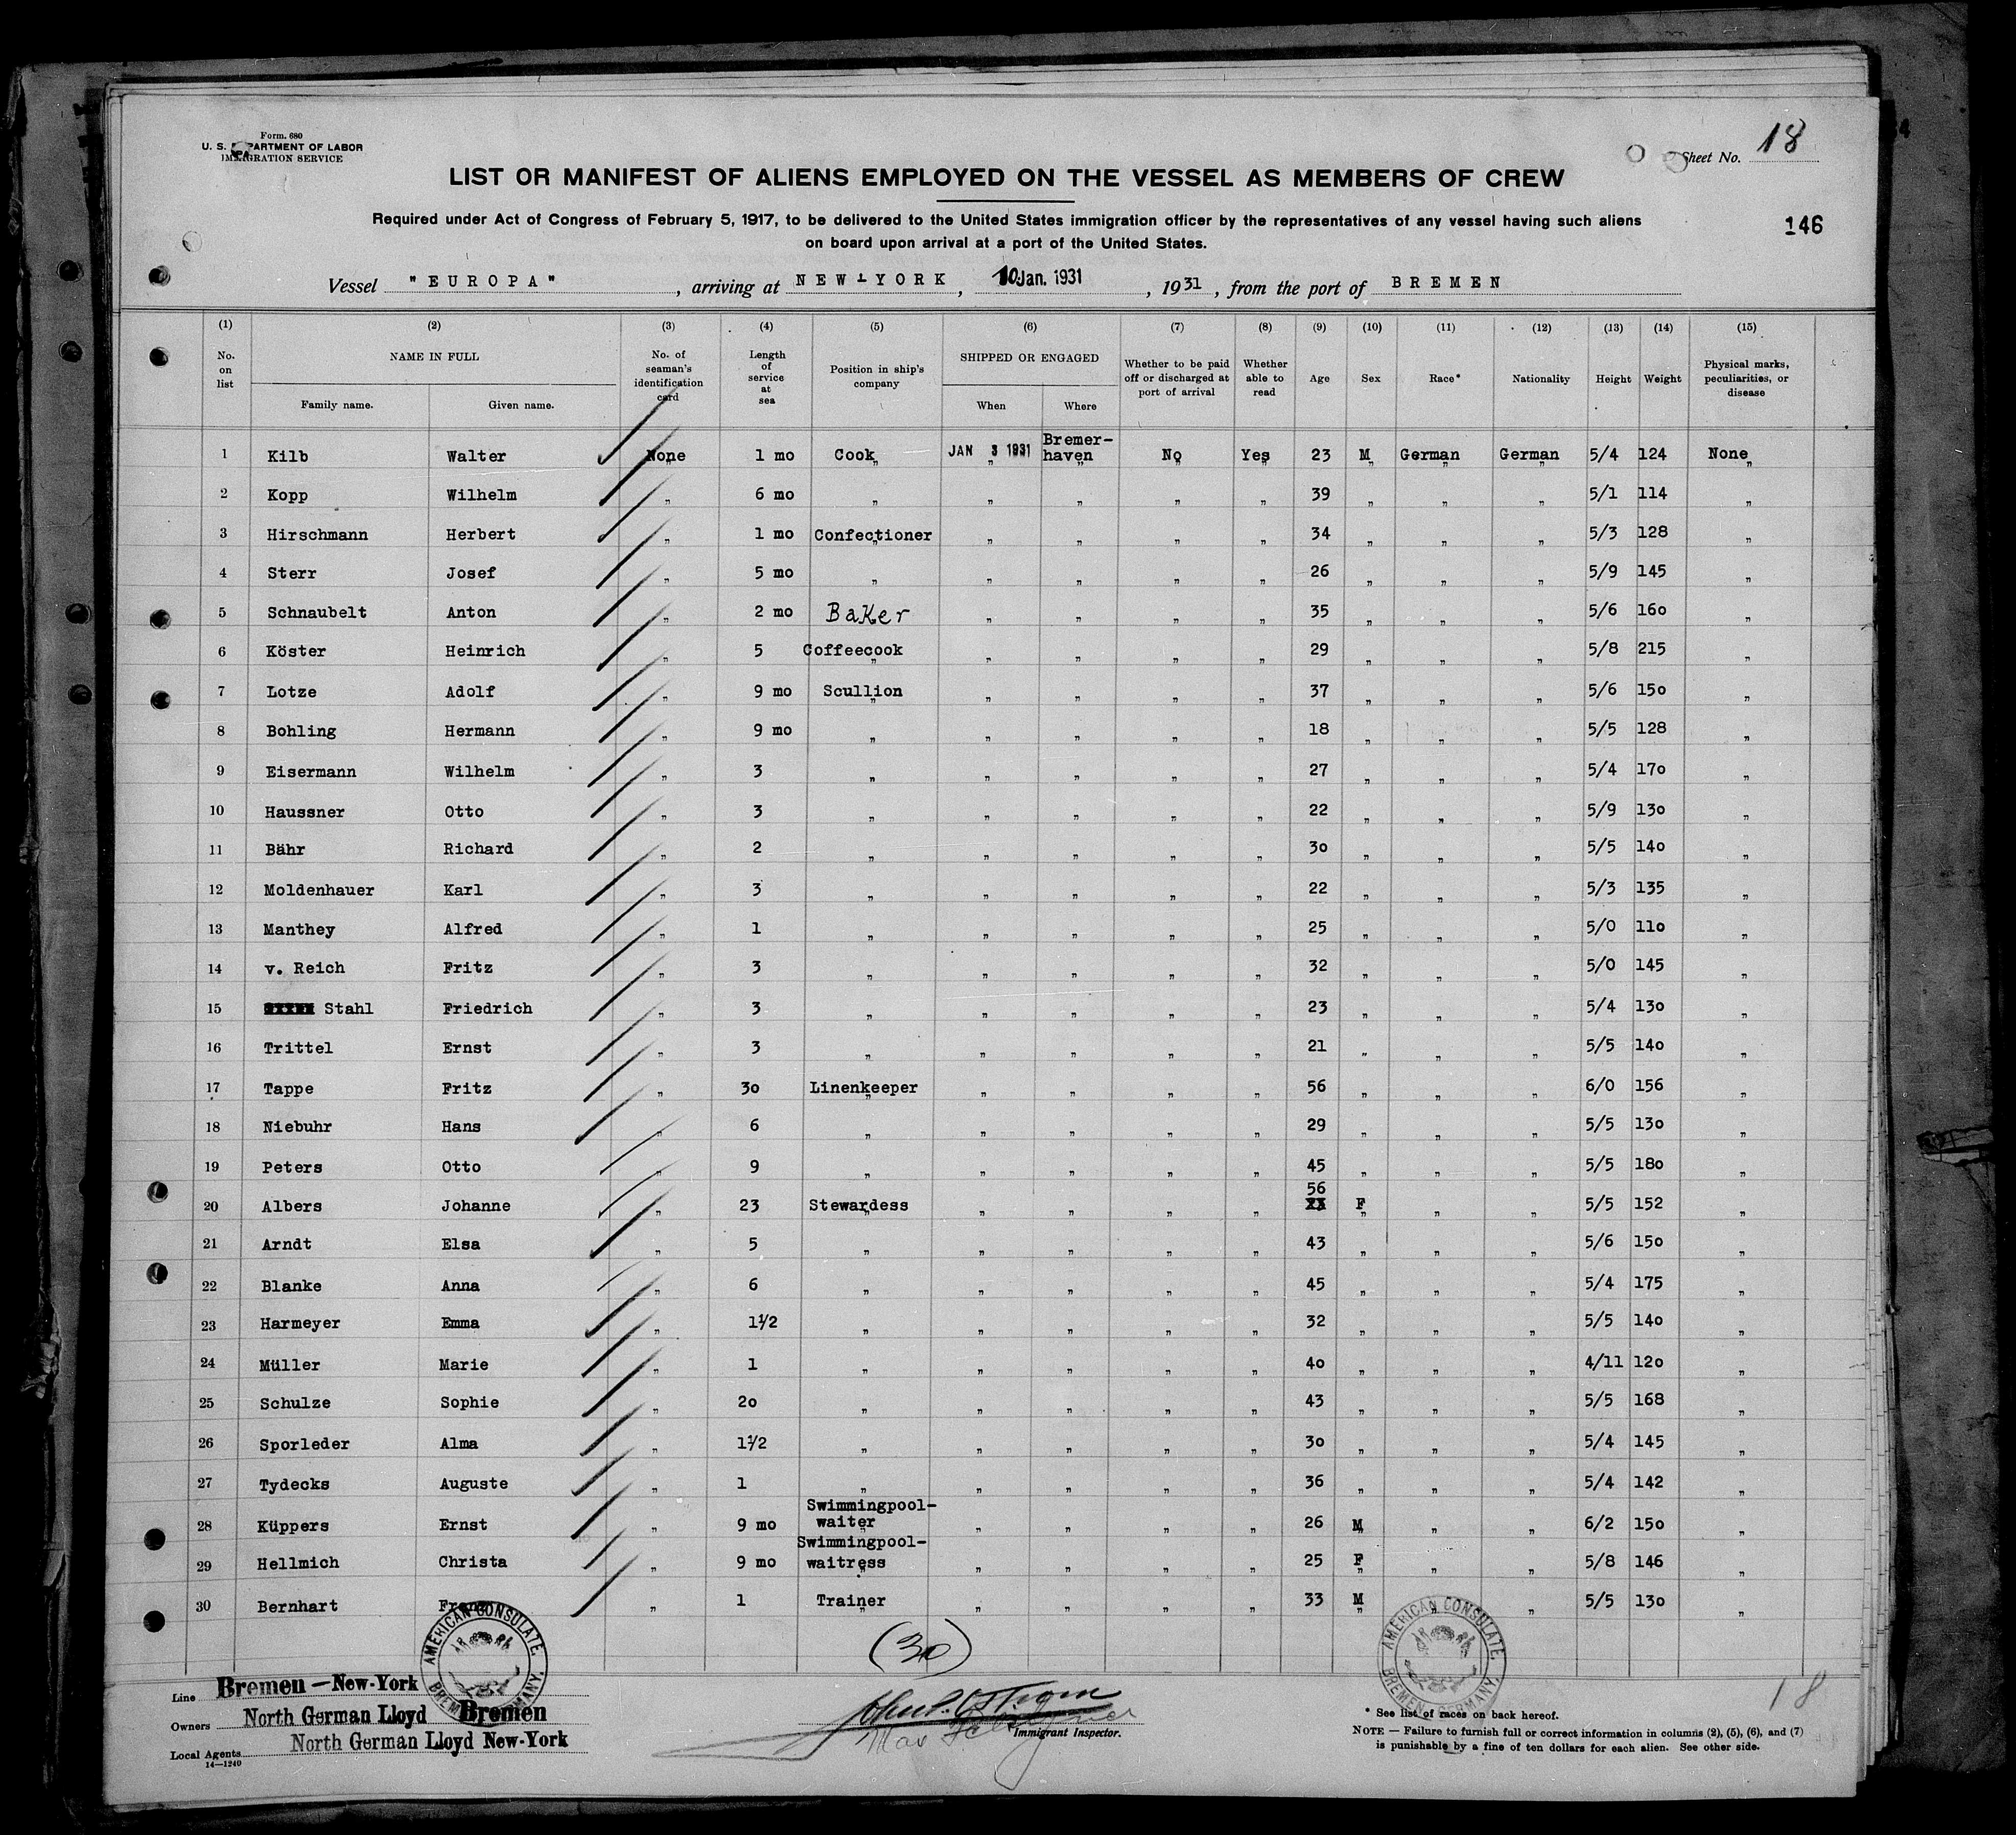 Form. 680
U. S. DEPARTMENT OF LABOR
IMMIGRATION SERVICE
Sheet No. 18
LIST OR MANIFEST OF ALIENS EMPLOYED ON THE VESSEL AS MEMBERS OF CREW
Required under Act of Congress of February 5, 1917, to be delivered to the United States immigration officer by the representatives of any vessel having such aliens
on board upon arrival at a port of the United States.
146
Vessel "EUROPA", arriving at NEW-YORK, 10 Jan. 1931, 1931, from the port of BREMEN
(1) (2) (3) (4) (5) (6) (7) (8) (9) (10) (11) (12) (13) (14) (15)
No. on list NAME IN FULL Family name. Given name. No. of seaman's identification card Length of service at sea Position in ship's company SHIPPED OR ENGAGED When Where Whether to be paid off or discharged at port of arrival Whether able to read Age Sex Race* Nationality Height Weight Physical marks, peculiarities, or disease
1 Kilb Walter None 1 mo Cook JAN 3 1931 Bremer-haven No Yes 23 M German German 5/4 124 None
2 Kopp Wilhelm " 6 mo " " " " " 39 " " " 5/1 114 "
3 Hirschmann Herbert " 1 mo Confectioner " " " " 34 " " " 5/3 128 "
4 Sterr Josef " 5 mo " " " " " 26 " " " 5/9 145 "
5 Schnaubelt Anton " 2 mo Baker " " " " 35 " " " 5/6 160 "
6 Köster Heinrich " 5 Coffeecook " " " " 29 " " " 5/8 215 "
7 Lotze Adolf " 9 mo Scullion " " " " 37 " " " 5/6 150 "
8 Bohling Hermann " 9 mo " " " " " 18 " " " 5/5 128 "
9 Eisermann Wilhelm " 3 " " " " " 27 " " " 5/4 170 "
10 Haussner Otto " 3 " " " " " 22 " " " 5/9 130 "
11 Bähr Richard " 2 " " " " " 30 " " " 5/5 140 "
12 Moldenhauer Karl " 3 " " " " " 22 " " " 5/3 135 "
13 Manthey Alfred " 1 " " " " " 25 " " " 5/0 110 "
14 v. Reich Fritz " 3 " " " " " 32 " " " 5/0 145 "
15 Stahl Friedrich " 3 " " " " " 23 " " " 5/4 130 "
16 Trittel Ernst " 3 " " " " " 21 " " " 5/5 140 "
17 Tappe Fritz " 30 Linenkeeper " " " " 56 " " " 6/0 156 "
18 Niebuhr Hans " 6 " " " " " 29 " " " 5/5 130 "
19 Peters Otto " 9 " " " " " 45 " " " 5/5 180 "
20 Albers Johanne " 23 Stewardess " " " " 56 F " " 5/5 152 "
21 Arndt Elsa " 5 " " " " " 43 " " " 5/6 150 "
22 Blanke Anna " 6 " " " " " 45 " " " 5/4 175 "
23 Harmeyer Emma " 1½ " " " " " 32 " " " 5/5 140 "
24 Müller Marie " 1 " " " " " 40 " " " 4/11 120 "
25 Schulze Sophie " 20 " " " " " 43 " " " 5/5 168 "
26 Sporleder Alma " 1½ " " " " " 30 " " " 5/4 145 "
27 Tydecks Auguste " 1 " " " " " 36 " " " 5/4 142 "
28 Küppers Ernst " 9 mo Swimmingpool-waiter " " " " 26 M " " 6/2 150 "
29 Hellmich Christa " 9 mo Swimmingpool-waitress " " " " 25 F " " 5/8 146 "
30 Bernhart " 1 Trainer " " " " 33 M " " 5/5 130 "
(30)
AMERICAN CONSULATE, BREMEN, GERMANY.
AMERICAN CONSULATE, BREMEN, GERMANY.
Line Bremen - New-York
Owners North German Lloyd Bremen
Local Agents North German Lloyd New-York
14-1240
Immigrant Inspector.
18
* See list of races on back hereof.
NOTE — Failure to furnish full or correct information in columns (2), (5), (6), and (7)
is punishable by a fine of ten dollars for each alien. See other side.